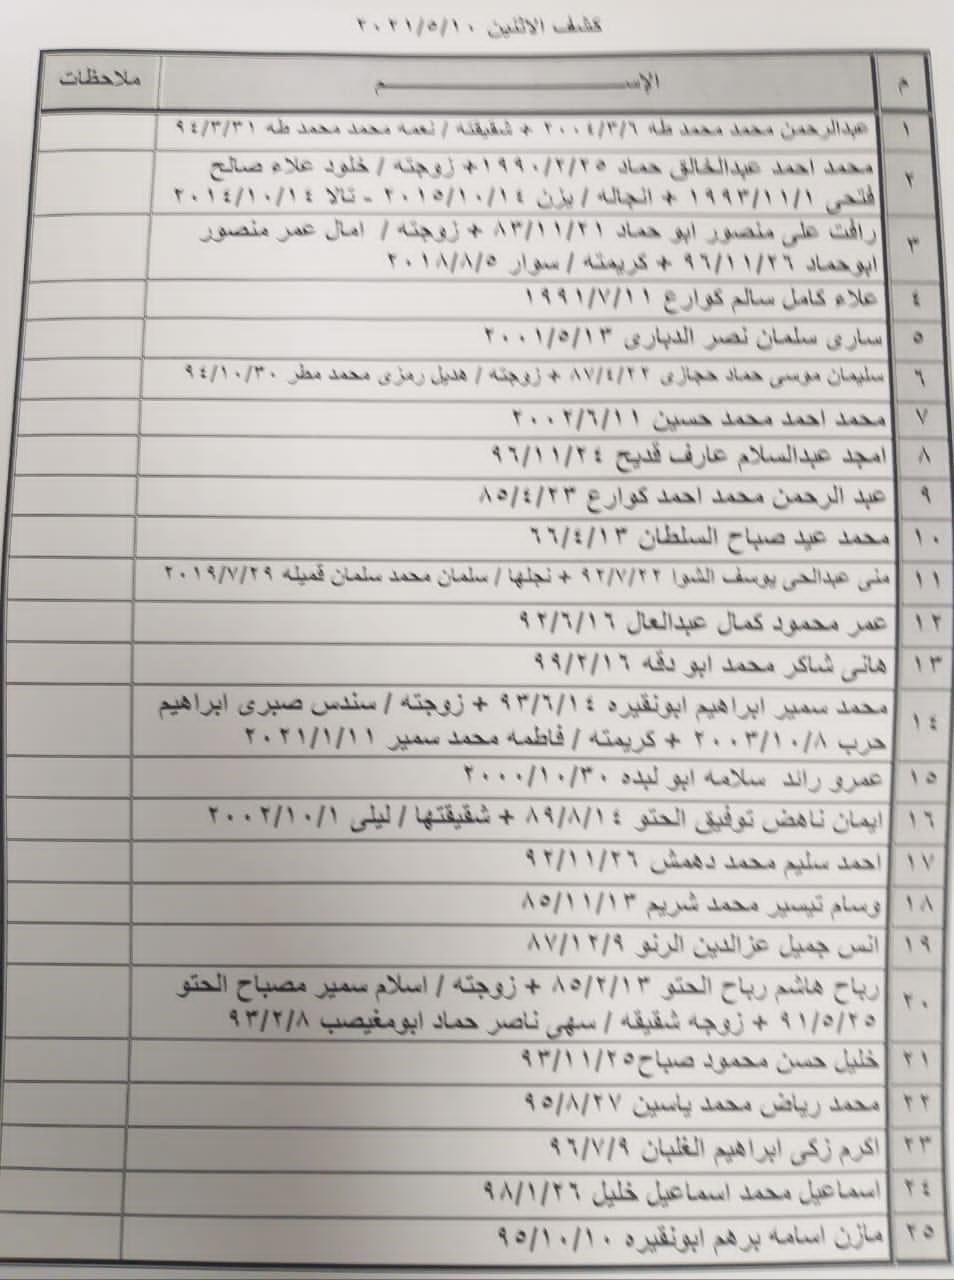 كشف الاثنين ٢٠٢١/٥/١٠
م الإســـــــــم ملاحظات
١ عبدالرحمن محمد محمد طه ٢٠٠٤/٣/٦ + شقيقته / نعمه محمد محمد طه ٩٤/٣/٣١
٢ محمد احمد عبدالخالق حماد ١٩٩٠/٢/٢٥+ زوجته / خلود علاء صالح
فتحى ١٩٩٣/١١/١ + انجاله / يزن ٢٠١٥/١٠/١٤ - تالا ٢٠١٤/١٠/١٤
٣ رافت على منصور ابو حماد ٨٣/١١/٢١ + زوجته / امال عمر منصور
ابوحماد ٩٦/١١/٢٦ + كريمته / سوار ٢٠١٨/٨/٥
٤ علاء كامل سالم كوارع ١٩٩١/٧/١١
٥ سارى سلمان نصر الدبارى ٢٠٠١/٥/١٣
٦ سليمان موسى حماد حجازى ٨٧/٤/٢٢ + زوجته / هديل رمزى محمد مطر ٩٤/١٠/٣٠
٧ محمد احمد محمد حسين ٢٠٠٢/٦/١١
٨ امجد عبدالسلام عارف قديح ٩٦/١١/٢٤
٩ عبد الرحمن محمد احمد كوارع ٨٥/٤/٢٣
١٠ محمد عيد صباح السلطان ٦٦/٤/١٣
١١ منى عبدالحى يوسف الشوا ٩٢/٧/٢٢ + نجلها / سلمان محمد سلمان قميله ٢٠١٩/٧/٢٩
١٢ عمر محمود كمال عبدالعال ٩٢/٦/١٦
١٣ هانى شاكر محمد ابو دقه ٩٩/٢/١٦
١٤ محمد سمير ابراهيم ابونقيره ٩٣/٦/١٤ + زوجته / سندس صبرى ابراهيم
حرب ٢٠٠٣/١٠/٨ + كريمته / فاطمه محمد سمير ٢٠٢١/١/١١
١٥ عمرو رائد سلامه ابو لبده ٢٠٠٠/١٠/٣٠
١٦ ايمان ناهض توفيق الحتو ٨٩/٨/١٤ + شقيقتها / ليلى ٢٠٠٢/١٠/١
١٧ احمد سليم محمد دهمش ٩٢/١١/٢٦
١٨ وسام تيسير محمد شريم ٨٥/١١/١٣
١٩ انس جميل عزالدين الرنو ٨٧/١٢/٩
٢٠ رباح هاشم رباح الحتو ٨٥/٢/١٣ + زوجته / اسلام سمير مصباح الحتو
٩١/٥/٢٥ + زوجه شقيقه / سهى ناصر حماد ابومغيصب ٩٣/٢/٨
٢١ خليل حسن محمود صباح٩٣/١١/٢٥
٢٢ محمد رياض محمد ياسين ٩٥/٨/٢٧
٢٣ اكرم زكى ابراهيم الغلبان ٩٦/٧/٩
٢٤ اسماعيل محمد اسماعيل خليل ٩٨/١/٢٦
٢٥ مازن اسامه برهم ابونقيره ٩٥/١٠/١٠